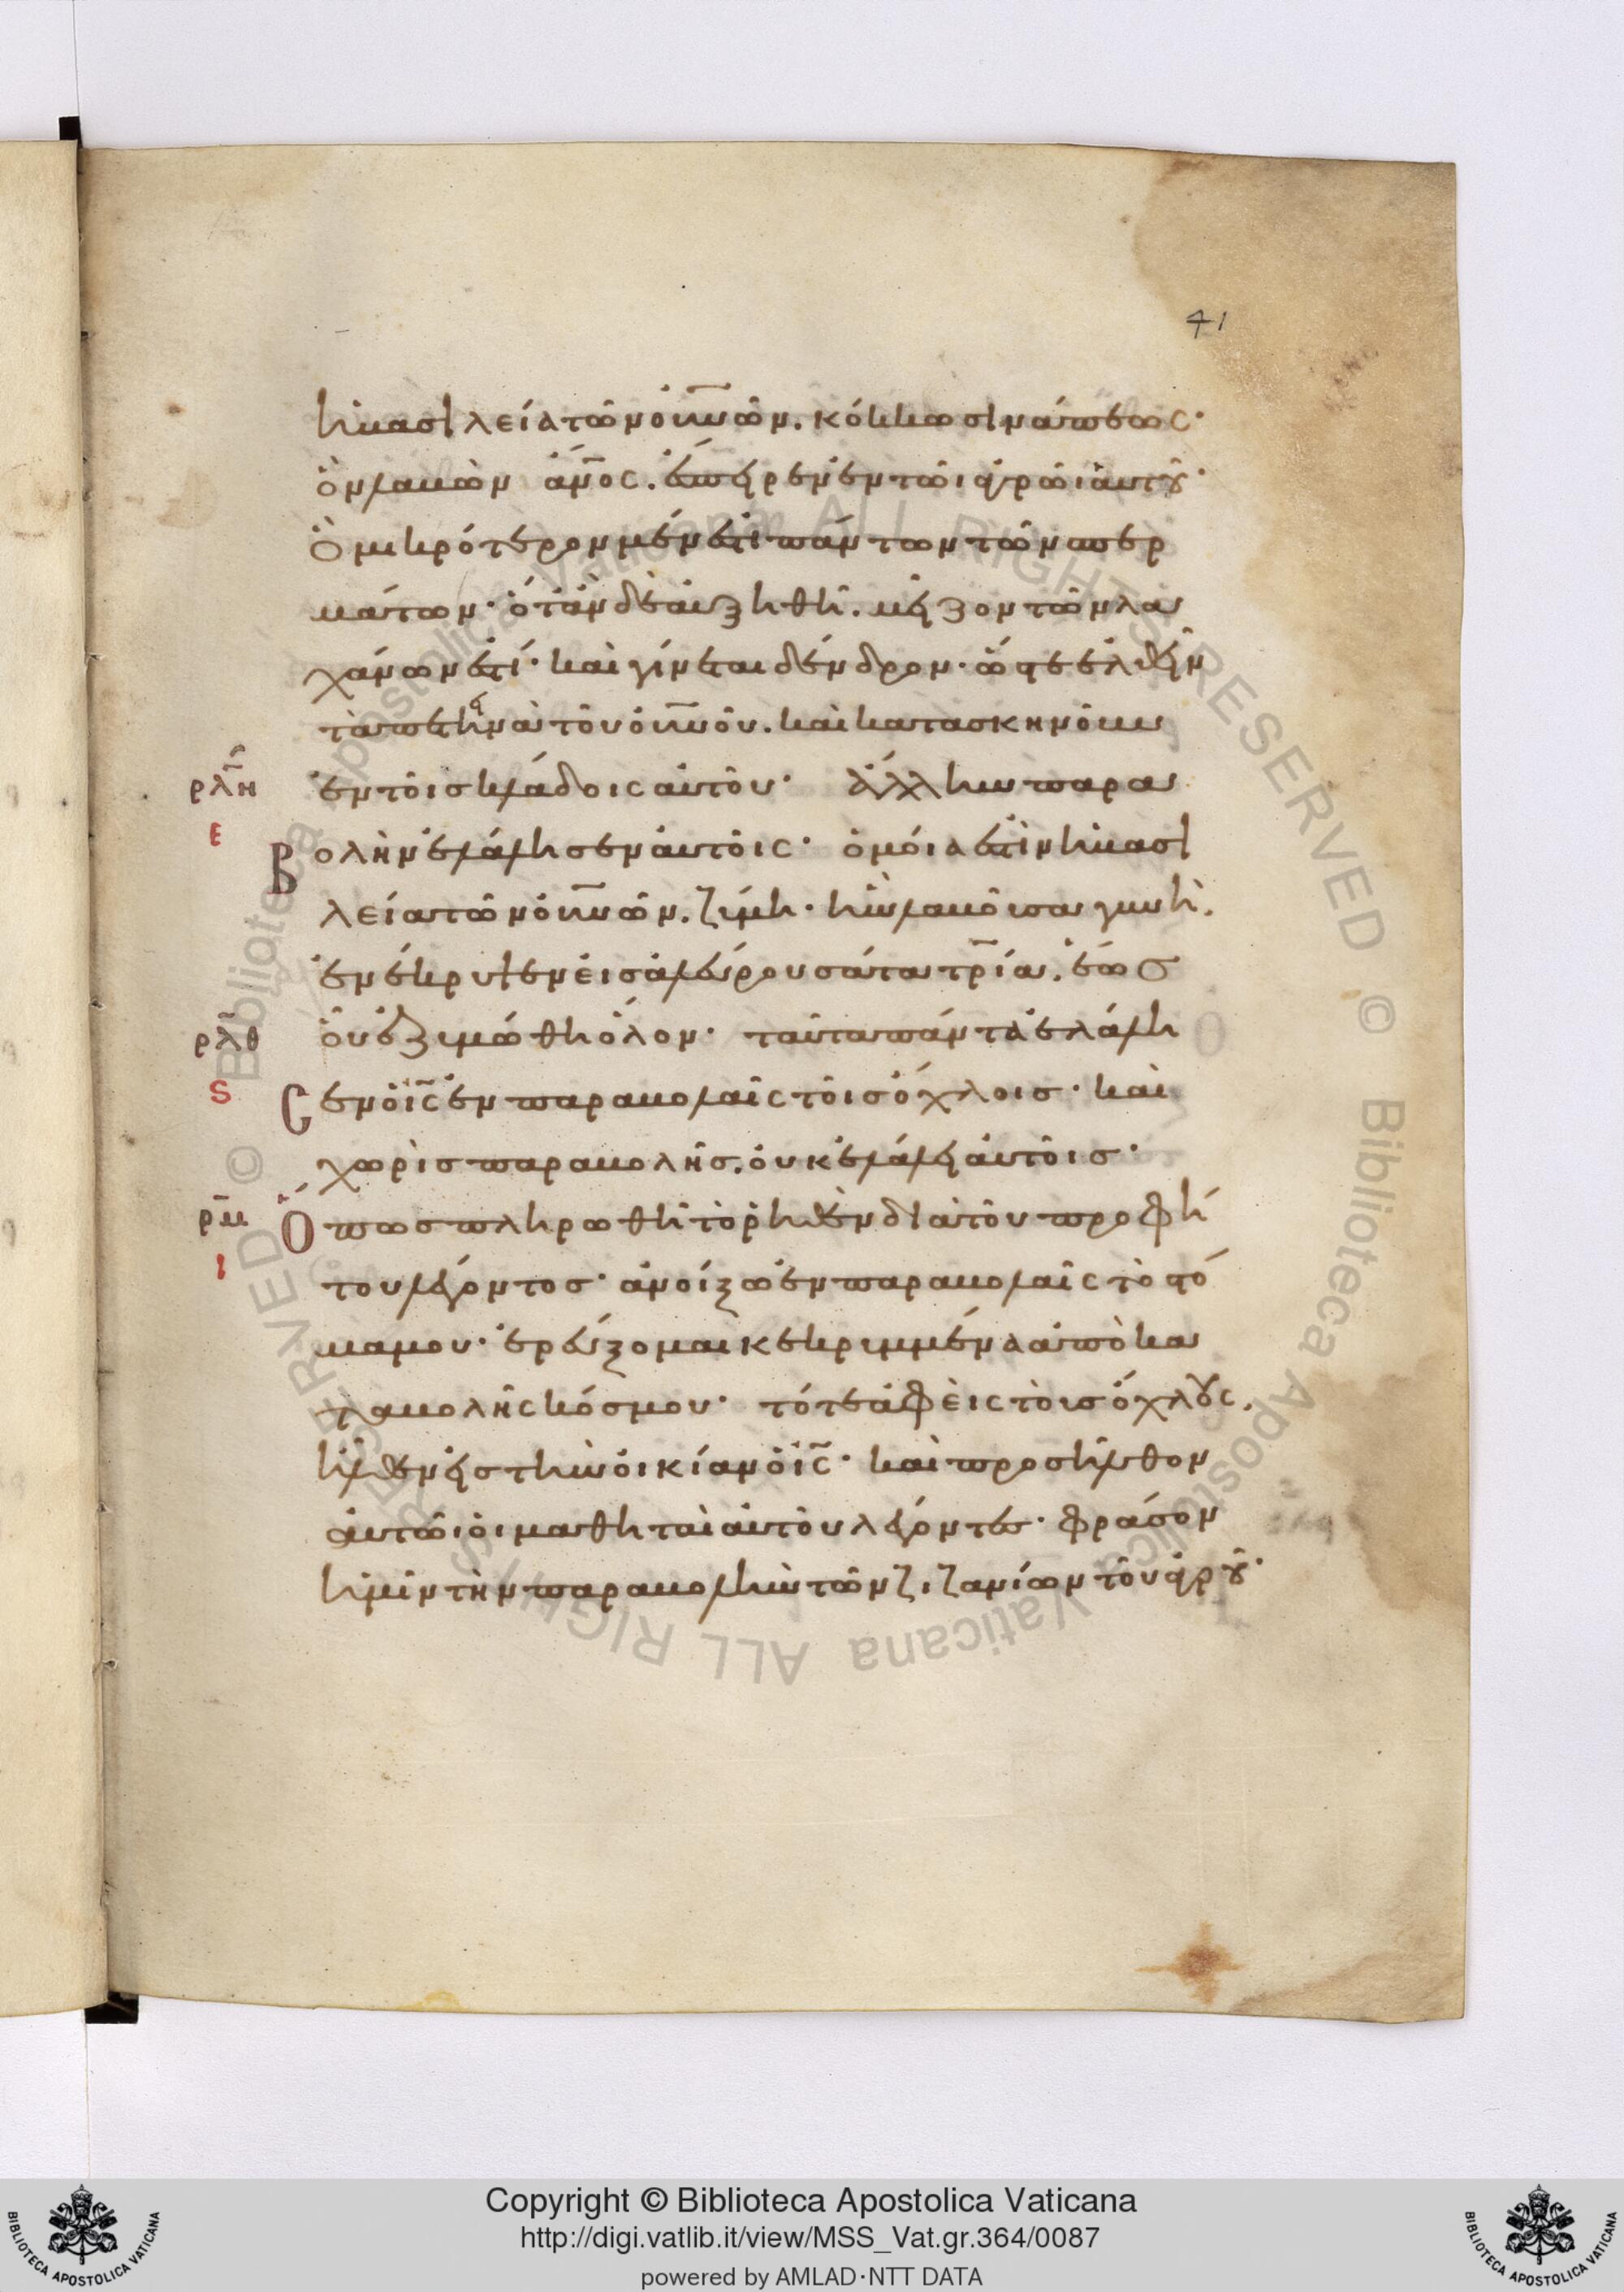 41
ἡ βασιλεία τῶν οὐνῶν. κόκκω σινάπεως·
ὃν λαβὼν ἄνος. ἔσπειρεν ἐν τῶι ἀγρῶι αὐτοῦ·
Ὃ μικρότερον μέν ἐστι πάντων τῶν σπερ
μάτων· ὅταν δὲ αὐξηθῆ. μεῖζον τῶν λα
χάνων ἐστί· καὶ γίνεται δένδρον· ὥστε ἐλθεῖν
τὰ πετεινὰ τοῦ οὐνοῦ. καὶ κατασκηνοῦν
ρλη ἐν τοῖς κλάδοις αὐτοῦ· ἄλλην παρα
ε
βολὴν ἐλάλησεν αὐτοῖς· ὁμοία ἐστὶν ἡ βασι
λεία τῶν οὐνῶν. ζύμη· ἣν λαβοῦσα γυνὴ.
ἐνέκρυψεν εἰς ἀλεύρου σάτα τρία. ἕως
ρλθ οὗ ἐζυμώθη ὅλον· ταῦτα πάντα ἐλάλη
ς
σεν ὁ ις ἐν παραβολαῖς τοῖς ὄχλοις· καὶ
χωρὶς παραβολῆς. οὐκ ἐλάλει αὐτοῖς·
ρμ Ὅπως πληρωθῆ τὸ ῥηθὲν διὰ τοῦ προφή
ι
του λέγοντος· ἀνοίξω ἐν παραβολαῖς τὸ στό
μα μου· ἐρεύξομαι κεκριμμένα ἀπὸ κα
ταβολῆς κόσμου· τότε ἀφεὶς τοὺς ὄχλους.
ἦλθεν εἰς τὴν οἰκίαν ὁ ις· καὶ προσῆλθον
αὐτῶι οἱ μαθηταὶ αὐτοῦ λέγοντες· φράσον
ἡμῖν τὴν παραβολὴν τῶν ζιζανίων τοῦ ἀγροῦ·
Copyright © Biblioteca Apostolica Vaticana
http://digi.vatlib.it/view/MSS_Vat.gr.364/0087
powered by AMLAD·NTT DATA
BIBLIOTECA APOSTOLICA VATICANA
BIBLIOTECA APOSTOLICA VATICANA